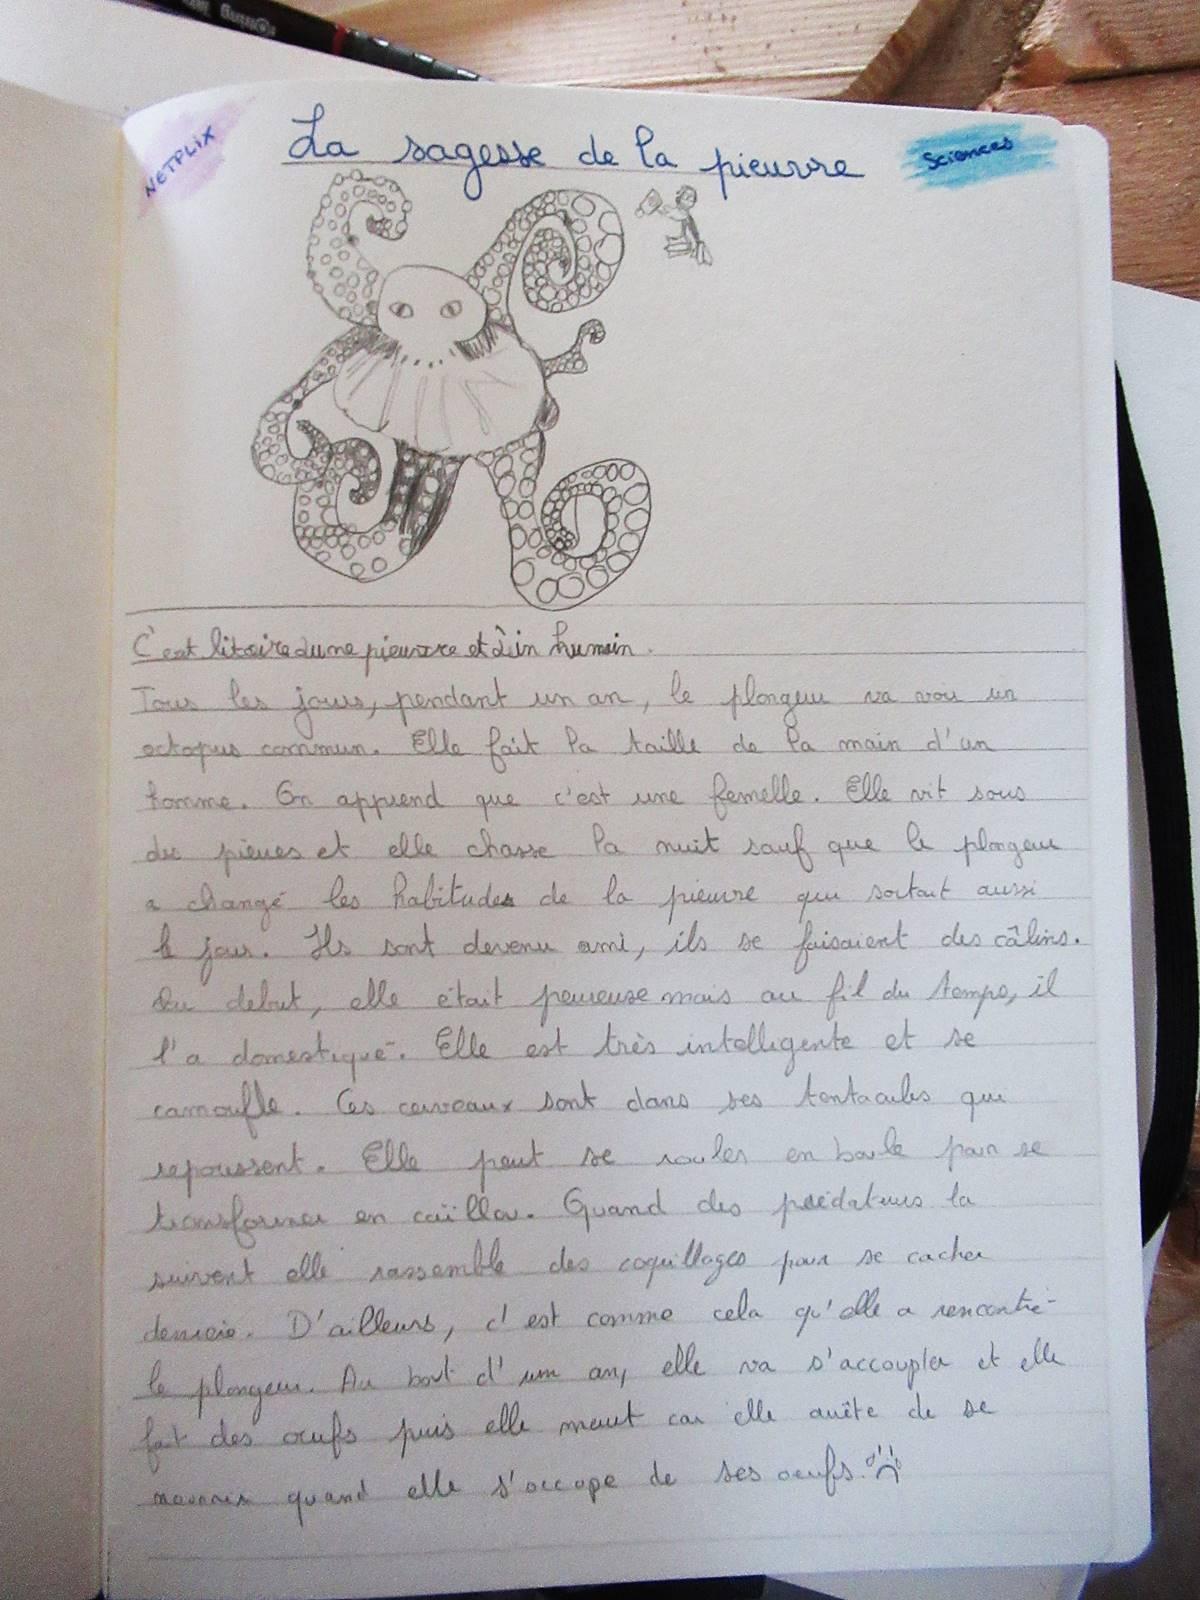 NETFLIX
La sagesse de la pieuvre
Sciences
C'est litoire d'une pieuvre et d'in humain.
Tous les jours, pendant un an, le plongeur va voir un
octopus commun. Elle fait la taille de la main d'un
homme. On apprend que c'est une femelle. Elle vit sous
des pierres et elle chasse la nuit sauf que le plongeur
a changé les habitudes de la pieuvre qui sortait aussi
le jour. Ils sont devenu ami, ils se faisaient des câlins.
Au debut, elle était peureuse mais au fil du temps, il
l'a domestiqué. Elle est très intelligente et se
camoufle. Ces cerveaux sont dans ses tentacules qui
repoussent. Elle peut se rouler en boule pour se
transformer en caïllou. Quand des prédateurs la
suivent elle rassemble des coquillages pour se cacher
derrière. D'ailleurs, c'est comme cela qu'elle a rencontré
le plongeur. Au bout d'un an, elle va s'accoupler et elle
fait des œufs puis elle meurt car elle arrête de se
nourrir quand elle s'occupe de ses oeufs.